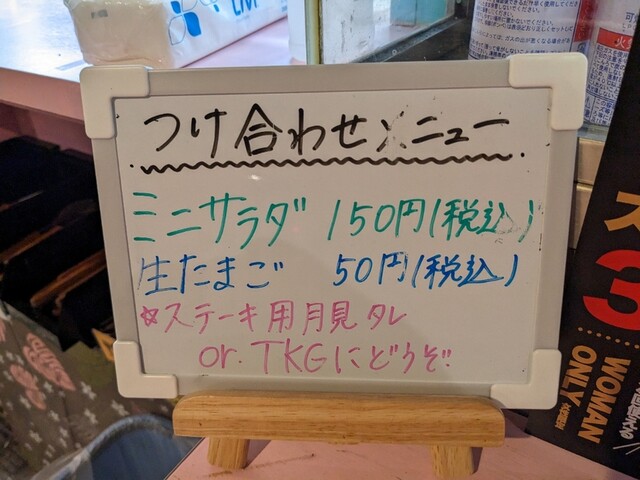 つけ合わせメニュー
ミニサラダ 150円(税込)
生たまご 50円(税込)
☆ステーキ用月見タレ
or TKGにどうぞ
WOMAN
ONLY